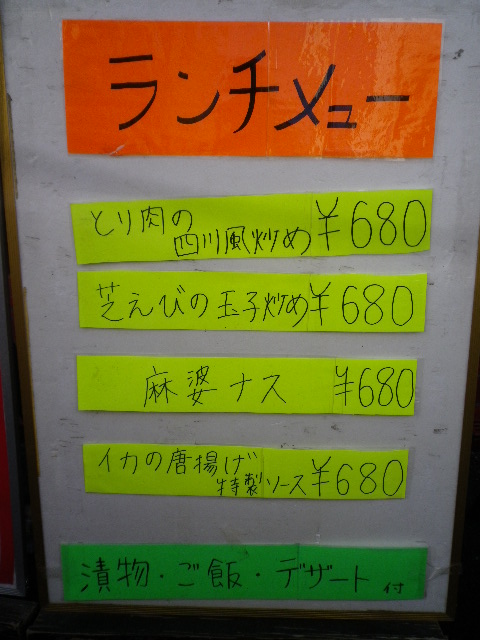 ランチメュー
とり肉の
四川風炒め ¥680
芝えびの玉子炒め ¥680
麻婆ナス ¥680
イカの唐揚げ
特製ソース ¥680
漬物・ご飯・デザート付